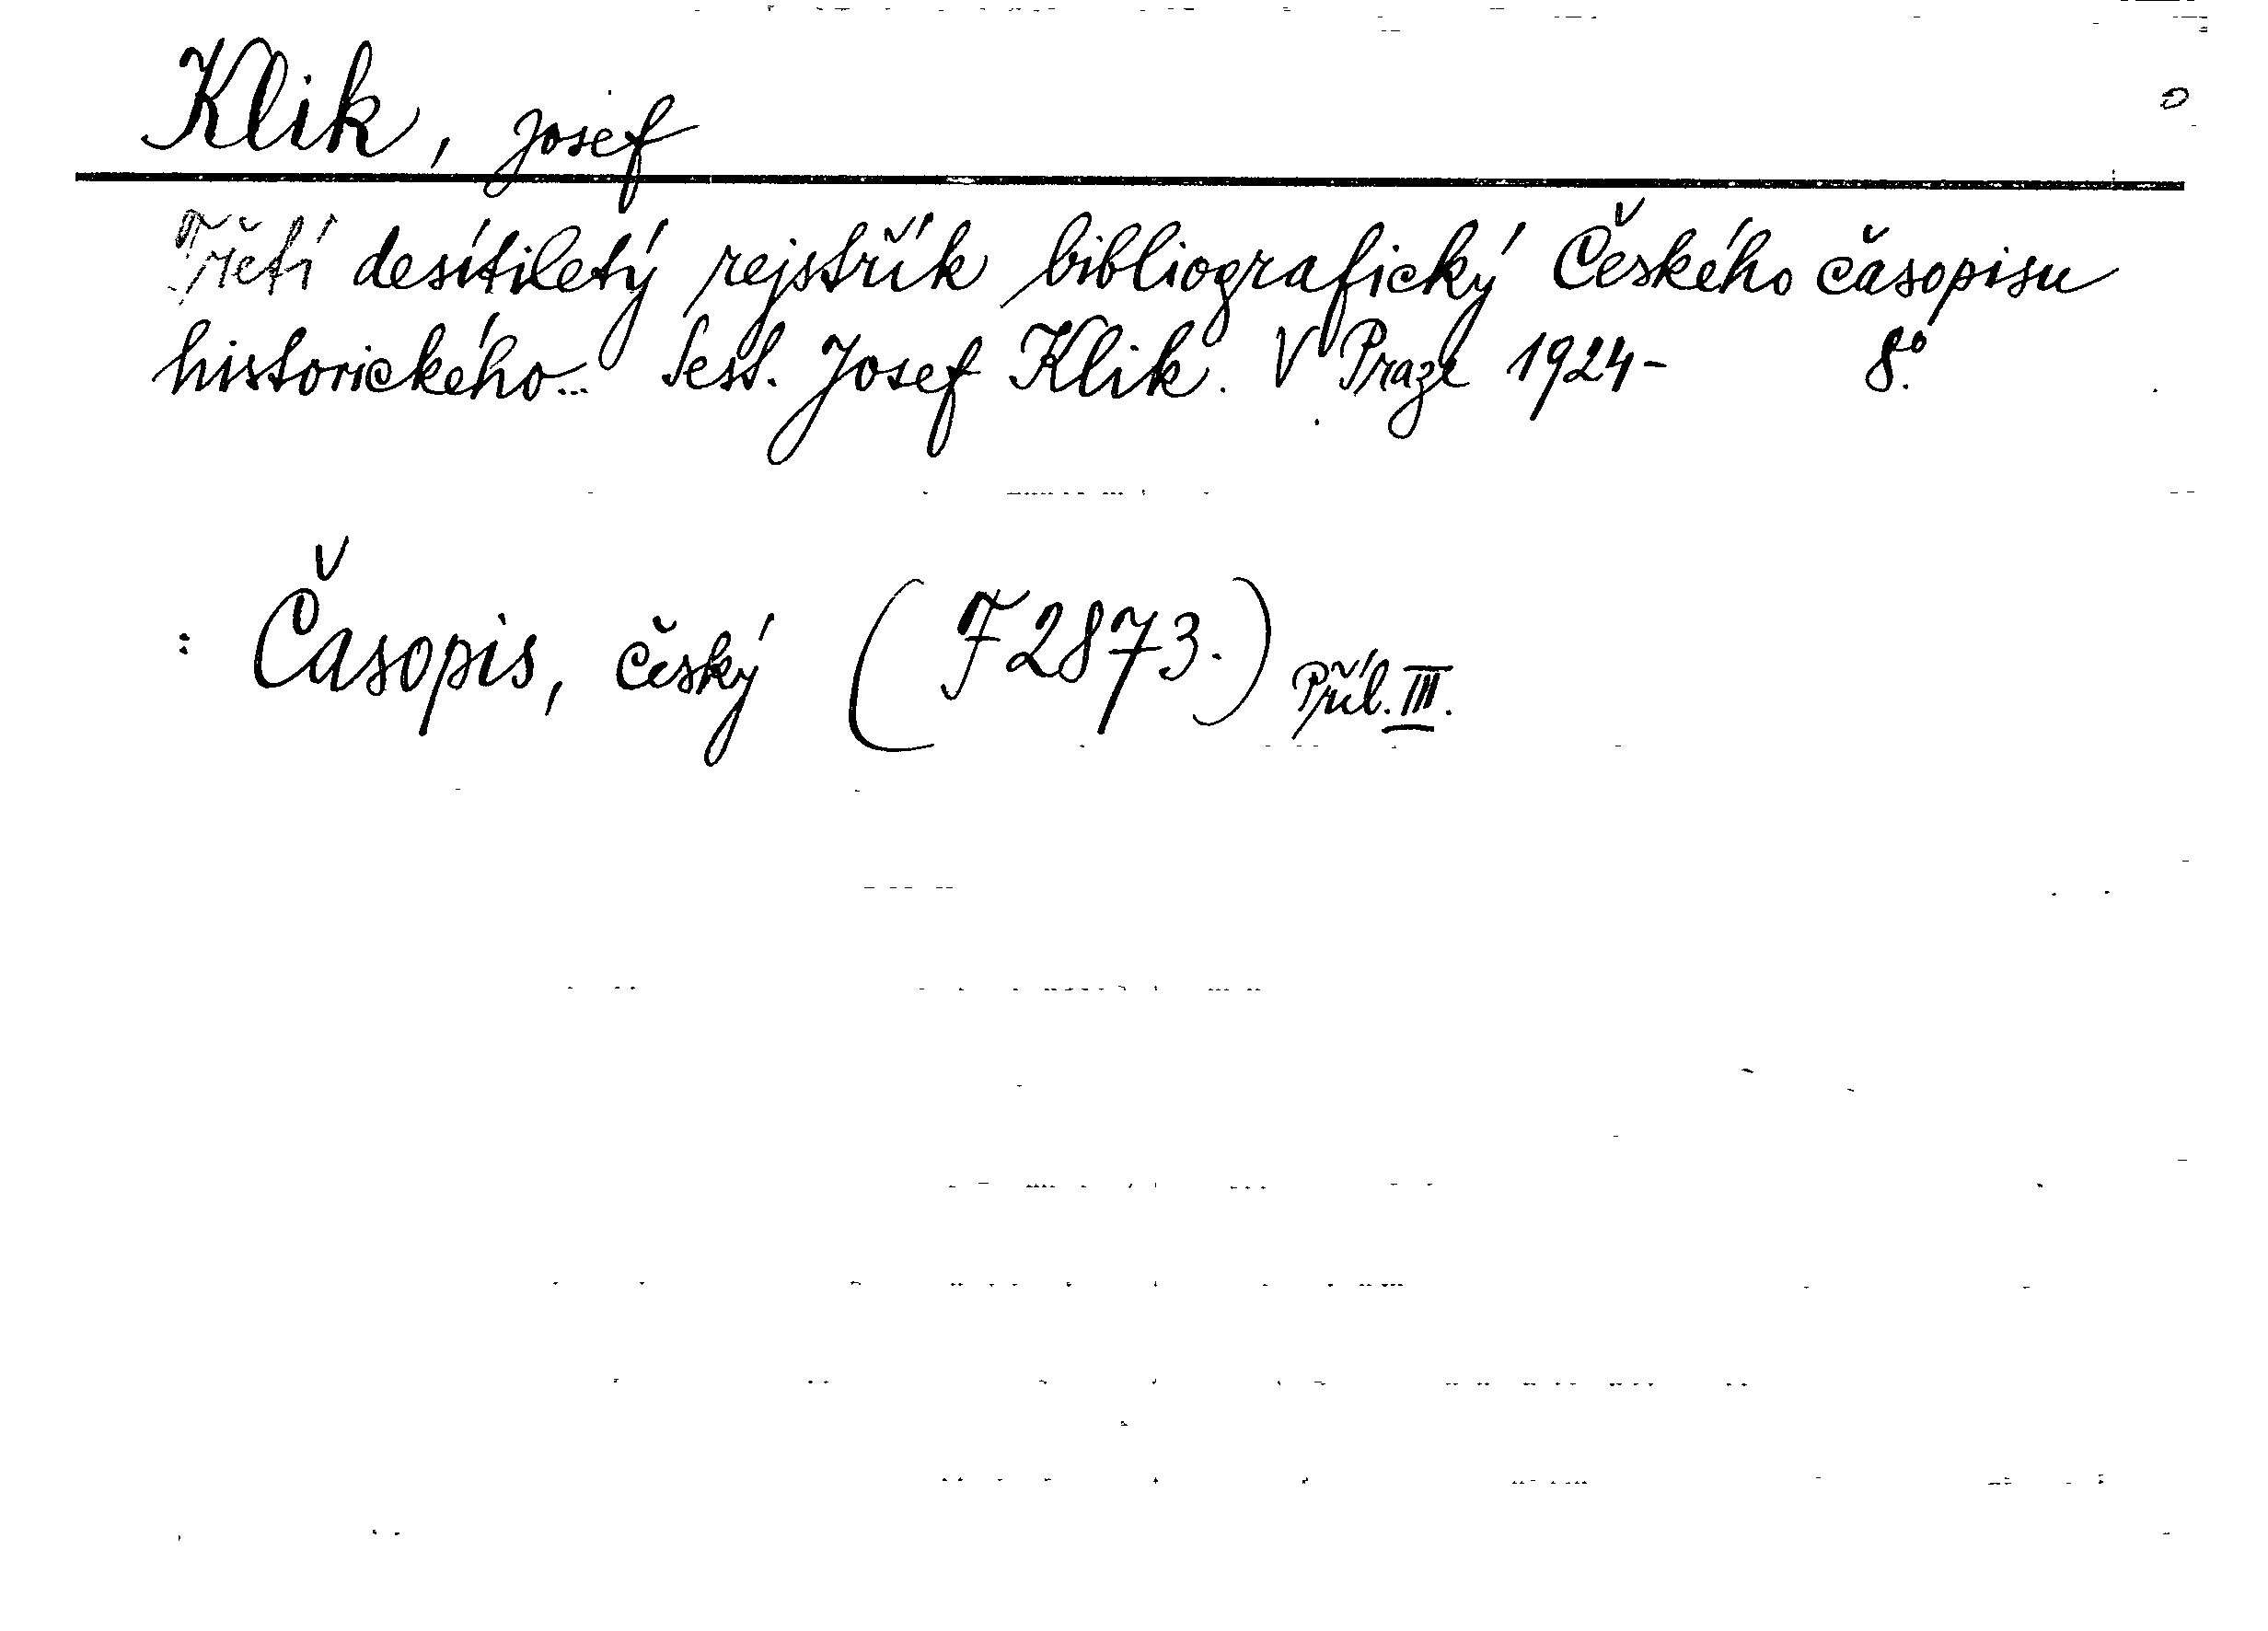 Klik, Josef
Třetí desítiletý rejstřík bibliografický Českého časopisu
historického... Sest. Josef Klik. V Praze 1924- 8.°
: Časopis, český (F 2873.) Příl. III.